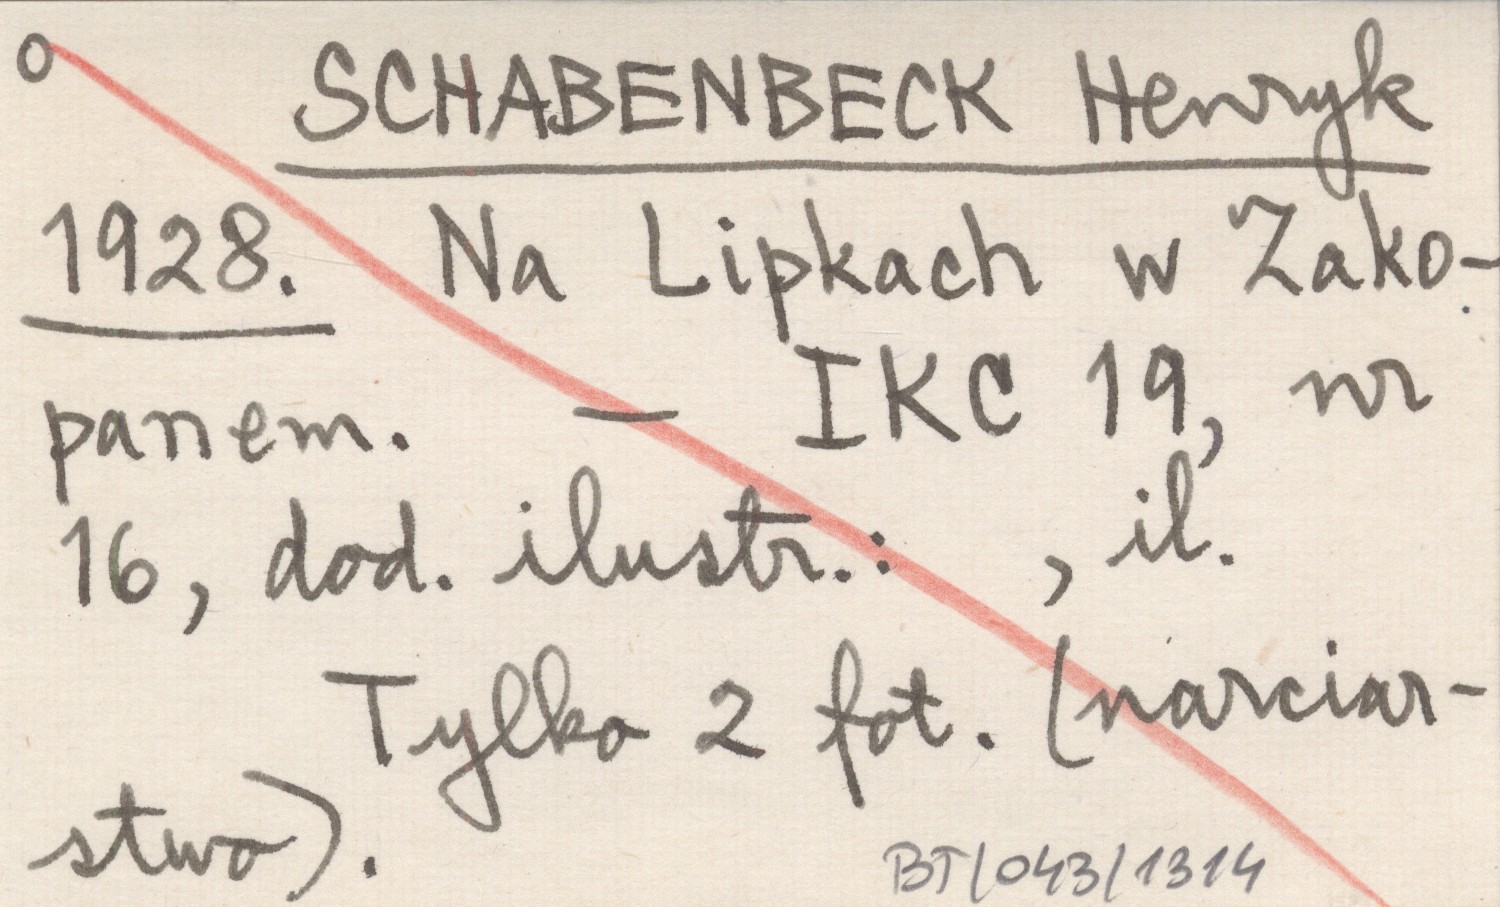 o SCHABENBECK Henryk
1928. Na Lipkach w Zako-
panem. — IKC 19, nr
16, dod. ilustr.: , il.
Tylko 2 fot. (narciar-
stwo).
BT/043/1314